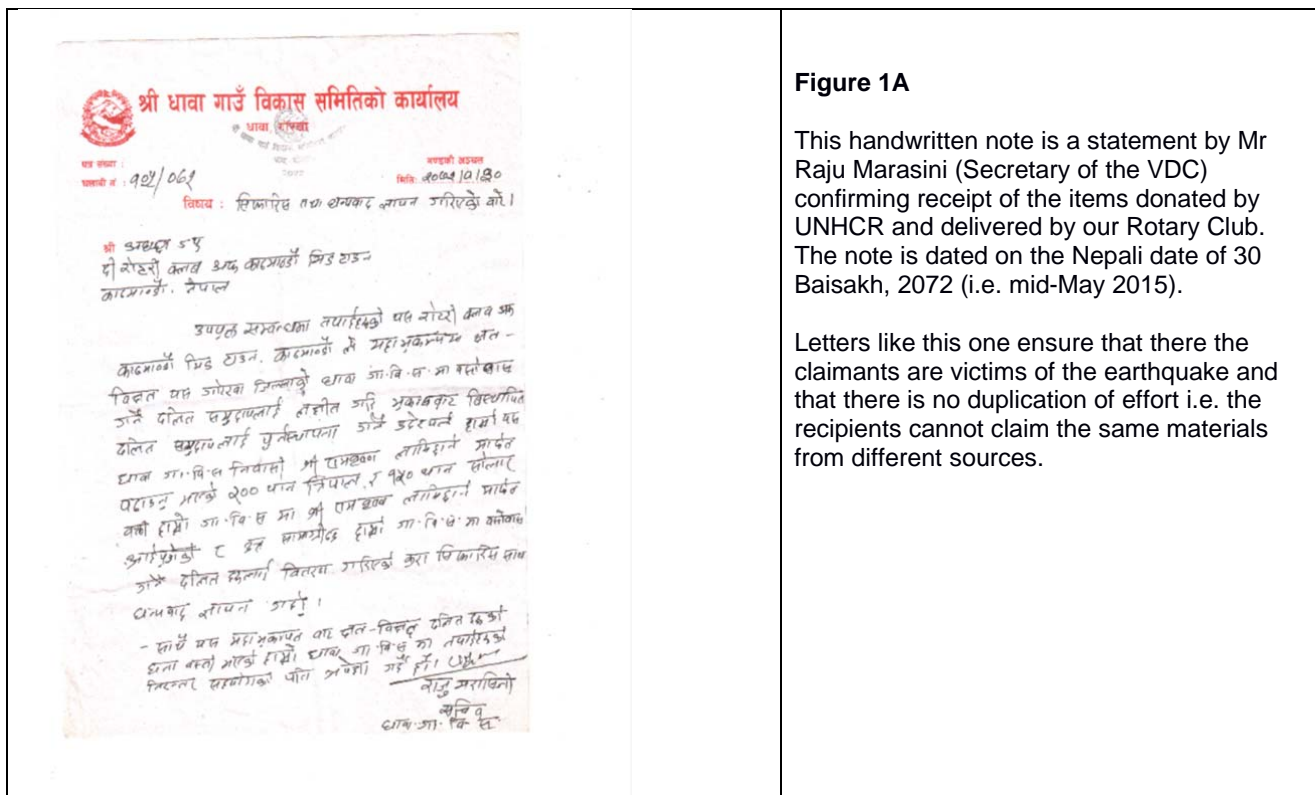 श्री धावा गाउँ विकास समितिको कार्यालय
धावा गोरखा
पत्र संख्या :
गण्डकी अञ्चल
चलानी नं : १०५/०६१
मिति: २०७२/०१/३०
विषय : सिफारिस तथा धन्यवाद ज्ञापन गरिएको बारे।
श्री अध्यक्ष ज्यू
दी रोटरी क्लव अफ काठमाण्डौ मिड टाउन
काठमाण्डौ, नेपाल
उपयुक्त सम्वन्धमा तपाईहरुको यस रोटरी क्लव अफ
काठमाण्डौ मिड टाउन, काठमाण्डौ ले महाभुकम्पमा क्षत-
विक्षत यस गोरखा जिल्लाको धावा गा.वि.स. मा बसोबास
गर्ने दलित समुदायलाई लक्षीत गरि भुकम्पबाट विस्थापित
दलित समुदायलाई पुर्नस्थापना गर्ने उदेश्यले हाम्रो यस
धावा गा.वि.स निवासी श्री रामकृष्ण लामिछाने मार्फत
पठाउनु भएको २०० थान त्रिपाल र १५० थान सोलार
बत्ती हाम्रो गा.वि.स मा श्री रामकृष्ण लामिछाने मार्फत
आईपुगेको र सामाग्रीहरु हाम्रो गा.वि.स. मा बसोबास
गर्ने दलित हरुलाई वितरण गरिएको कुरा सिफारिस साथ
धन्यवाद ज्ञापन गर्दछु।
- साथै यस महाभुकम्प बाट क्षत-विक्षत दलित हरुको
घना बस्ती भएको हाम्रो धावा गा.वि.स मा तपाईहरुको
निरन्तर सहयोगको पनि अपेक्षा गर्दै छौं।
राजु मरासिनी
सचिव
धावा गा.वि.स
Figure 1A
This handwritten note is a statement by Mr
Raju Marasini (Secretary of the VDC)
confirming receipt of the items donated by
UNHCR and delivered by our Rotary Club.
The note is dated on the Nepali date of 30
Baisakh, 2072 (i.e. mid-May 2015).
Letters like this one ensure that there the
claimants are victims of the earthquake and
that there is no duplication of effort i.e. the
recipients cannot claim the same materials
from different sources.